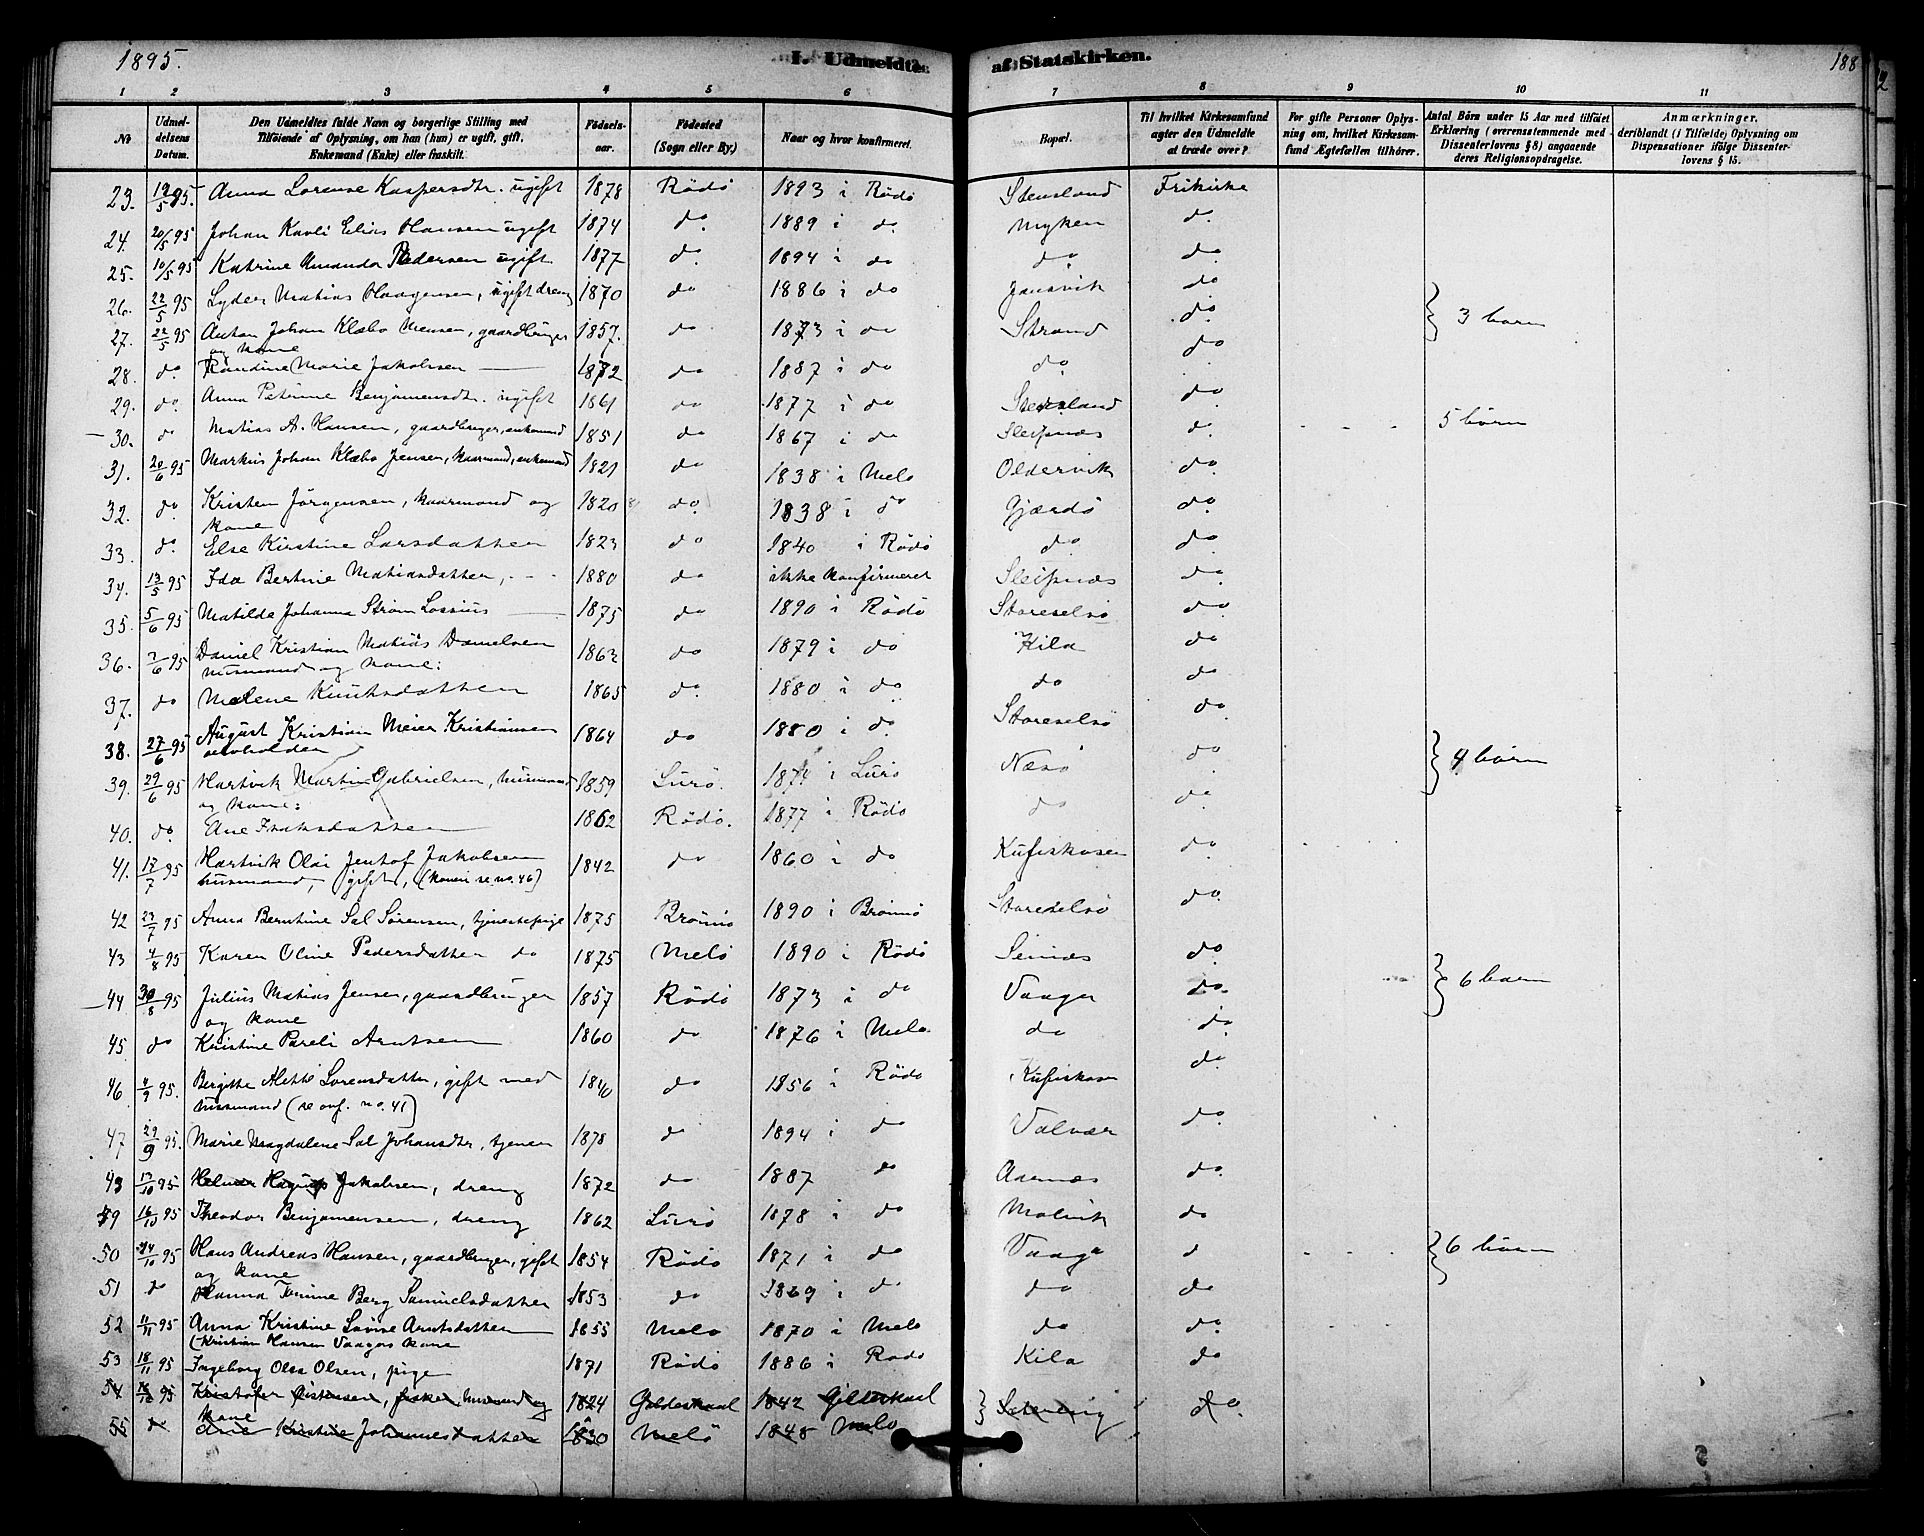 1895.
I. Udmeldte af Statskirken.
188
1 2 3 4 5 6 7 8 9 10 11
No
Udmeldelsens Datum.
Den Udmeldtes fulde Navn og borgerlige Stilling med Tilføiende af Oplysning, om han (hun) er ugift, gift, Enkemand (Enke) eller fraskilt.
Fødselsaar.
Fødested (Sogn eller By.)
Naar og hvor konfirmeret.
Bopæl.
Til hvilket Kirkesamfund agter den Udmeldte at træde over?
For gifte Personer Oplysning om, hvilket Kirkesamfund Ægtefællen tilhører.
Antal Børn under 15 Aar med tilføiet Erklæring (overensstemmende med Dissenterlovens § 8) angaaende deres Religionsopdragelse.
Anmærkninger, deriblandt (i Tilfælde) Oplysning om Dispensationer ifølge Dissenterlovens § 15.
23. 12/5 95. Anna Lorense Kaspersdtr. ugift 1878 Rödö 1893 i Rödö Stensland Frikirke
24. 20/5 95 Johan Kavli Elias Hansen ugift 1874 do. 1889 i do. Myken do.
25. 10/5 95 Katrine Amanda Pedersen ugift 1877 do. 1894 i do do do
26. 22/5 95 Lyder Mathias Haagensen, ugift dreng 1870 do 1886 i do Jansvik do
27. 22/5 95 Anton Johan Klæbo Mensen, gaardbruger 1857. do 1873 i do Strand do. } 3 born
og kone
28. do. Randine Marie Jakobsen 1872 do 1887 i do do do
29. do. Anna Petrine Benjamensdtr. ugift 1861 do 1877 i do Stensland do
30. do Matias A. Hansen, gaardbruger, enkemand 1851 do 1867 i do Sleipnæs do. 5 börn
31. 20/6 95 Markus Johan Klæbo Jensen, kaarmand, enkemand 1821 do 1838 i Melö Oldervik do.
32. do. Kristen Jörgensen, kaarmand og 1820 do. 1838 i do Gjærdö do.
kone
33. do. Else Kirstine Larsdatter 1823 do 1840 i Rödö do. do
34. 13/5 95 Ida Bertine Matiasdatter, 1880 do ikke konfirmeret Sleipnæs do
35. 5/6 95 Matilde Johanna Strøm Lossius 1875 do 1890 i Rödö Storeselsö do
36. 7/6 95 Daniel Kristian Mathias Danielsen 1862 do 1879 i do Kila do
husmand og kone:
37. do Malene Knutsdatter 1865 do. 1880 i do do do
38. 27/6 95 August Kristian Meier Kristiansen 1864 do 1880 i do. Storeselsö do
39. 29/6 95 Hartvik Martin Gabrielsen, husmand 1859 Lurö. 1874 i Lurö Næsö do } 4 börn
og kone:
40. do. Ane Isaksdatter 1862 Rödö. 1877 i Rödö do do.
41. 17/7 95 Hartvik Olai Jentof Jakobsen 1842 do 1860 i do Kufiskosen do
husmand, gift, (konen se no. 46)
42 23/7 95 Anna Berntine Sal Sörensen, tjenestepige 1875 Brönnö 1890 i Brönnö Storeselsö do.
43 4/8 95 Karen Oline Pedersdatter do 1875 Melö 1890 i Rödö Seines do.
44 30/8 95 Julius Matias Jensen, gaardbruger 1857 Rödö 1873 i do Vaagen do. } 6 barn
og kone
45. do Kristine Pareli Arntsen 1860 do 1876 i Melö. do do
46. 4/9 95. Bergitte Alette Lorensdatter, gift med 1840 do 1856 i Rödö Kufiskosen do.
husmand (se ovf. no. 41)
47 29/9 95. Marie Magdalene Sal Johansdtr, tjener 1878 do 1894 i do Valvær do.
48 13/10 95 Helmer Hagerup Jakobsen, dreng 1872 do 1887 do Aarnes do.
49 16/10 95 Theodor Benjamensen, dreng 1862 Lurö 1878 i do Molvik do
50 24/10 95 Hans Andreas Hansen, gaardbruger, gift 1854 Rödö 1871 i do Vaage d } 6 börn
og kone
51 do Hanna Tomine Berg Samuelsdatter 1853 do 1869 i do do do
52 11/11 95 Anna Kristine Lovise Arntsdatter 1855 Melö 1870 i Melö do do.
(Kristian Hansen Vaagens kone
53 18/11 95 Ingeborg Olea Olsen, pige 1871 Rödö 1886 i Rödö Kila do
54 95 Kristofer Cistensen, fisker, husmand og 1824 Gildeskaal 1842 Gildeskaal } do.
kone
55 do Ane Kirstine Johannesdatter 1830 Melö 1848 Melö